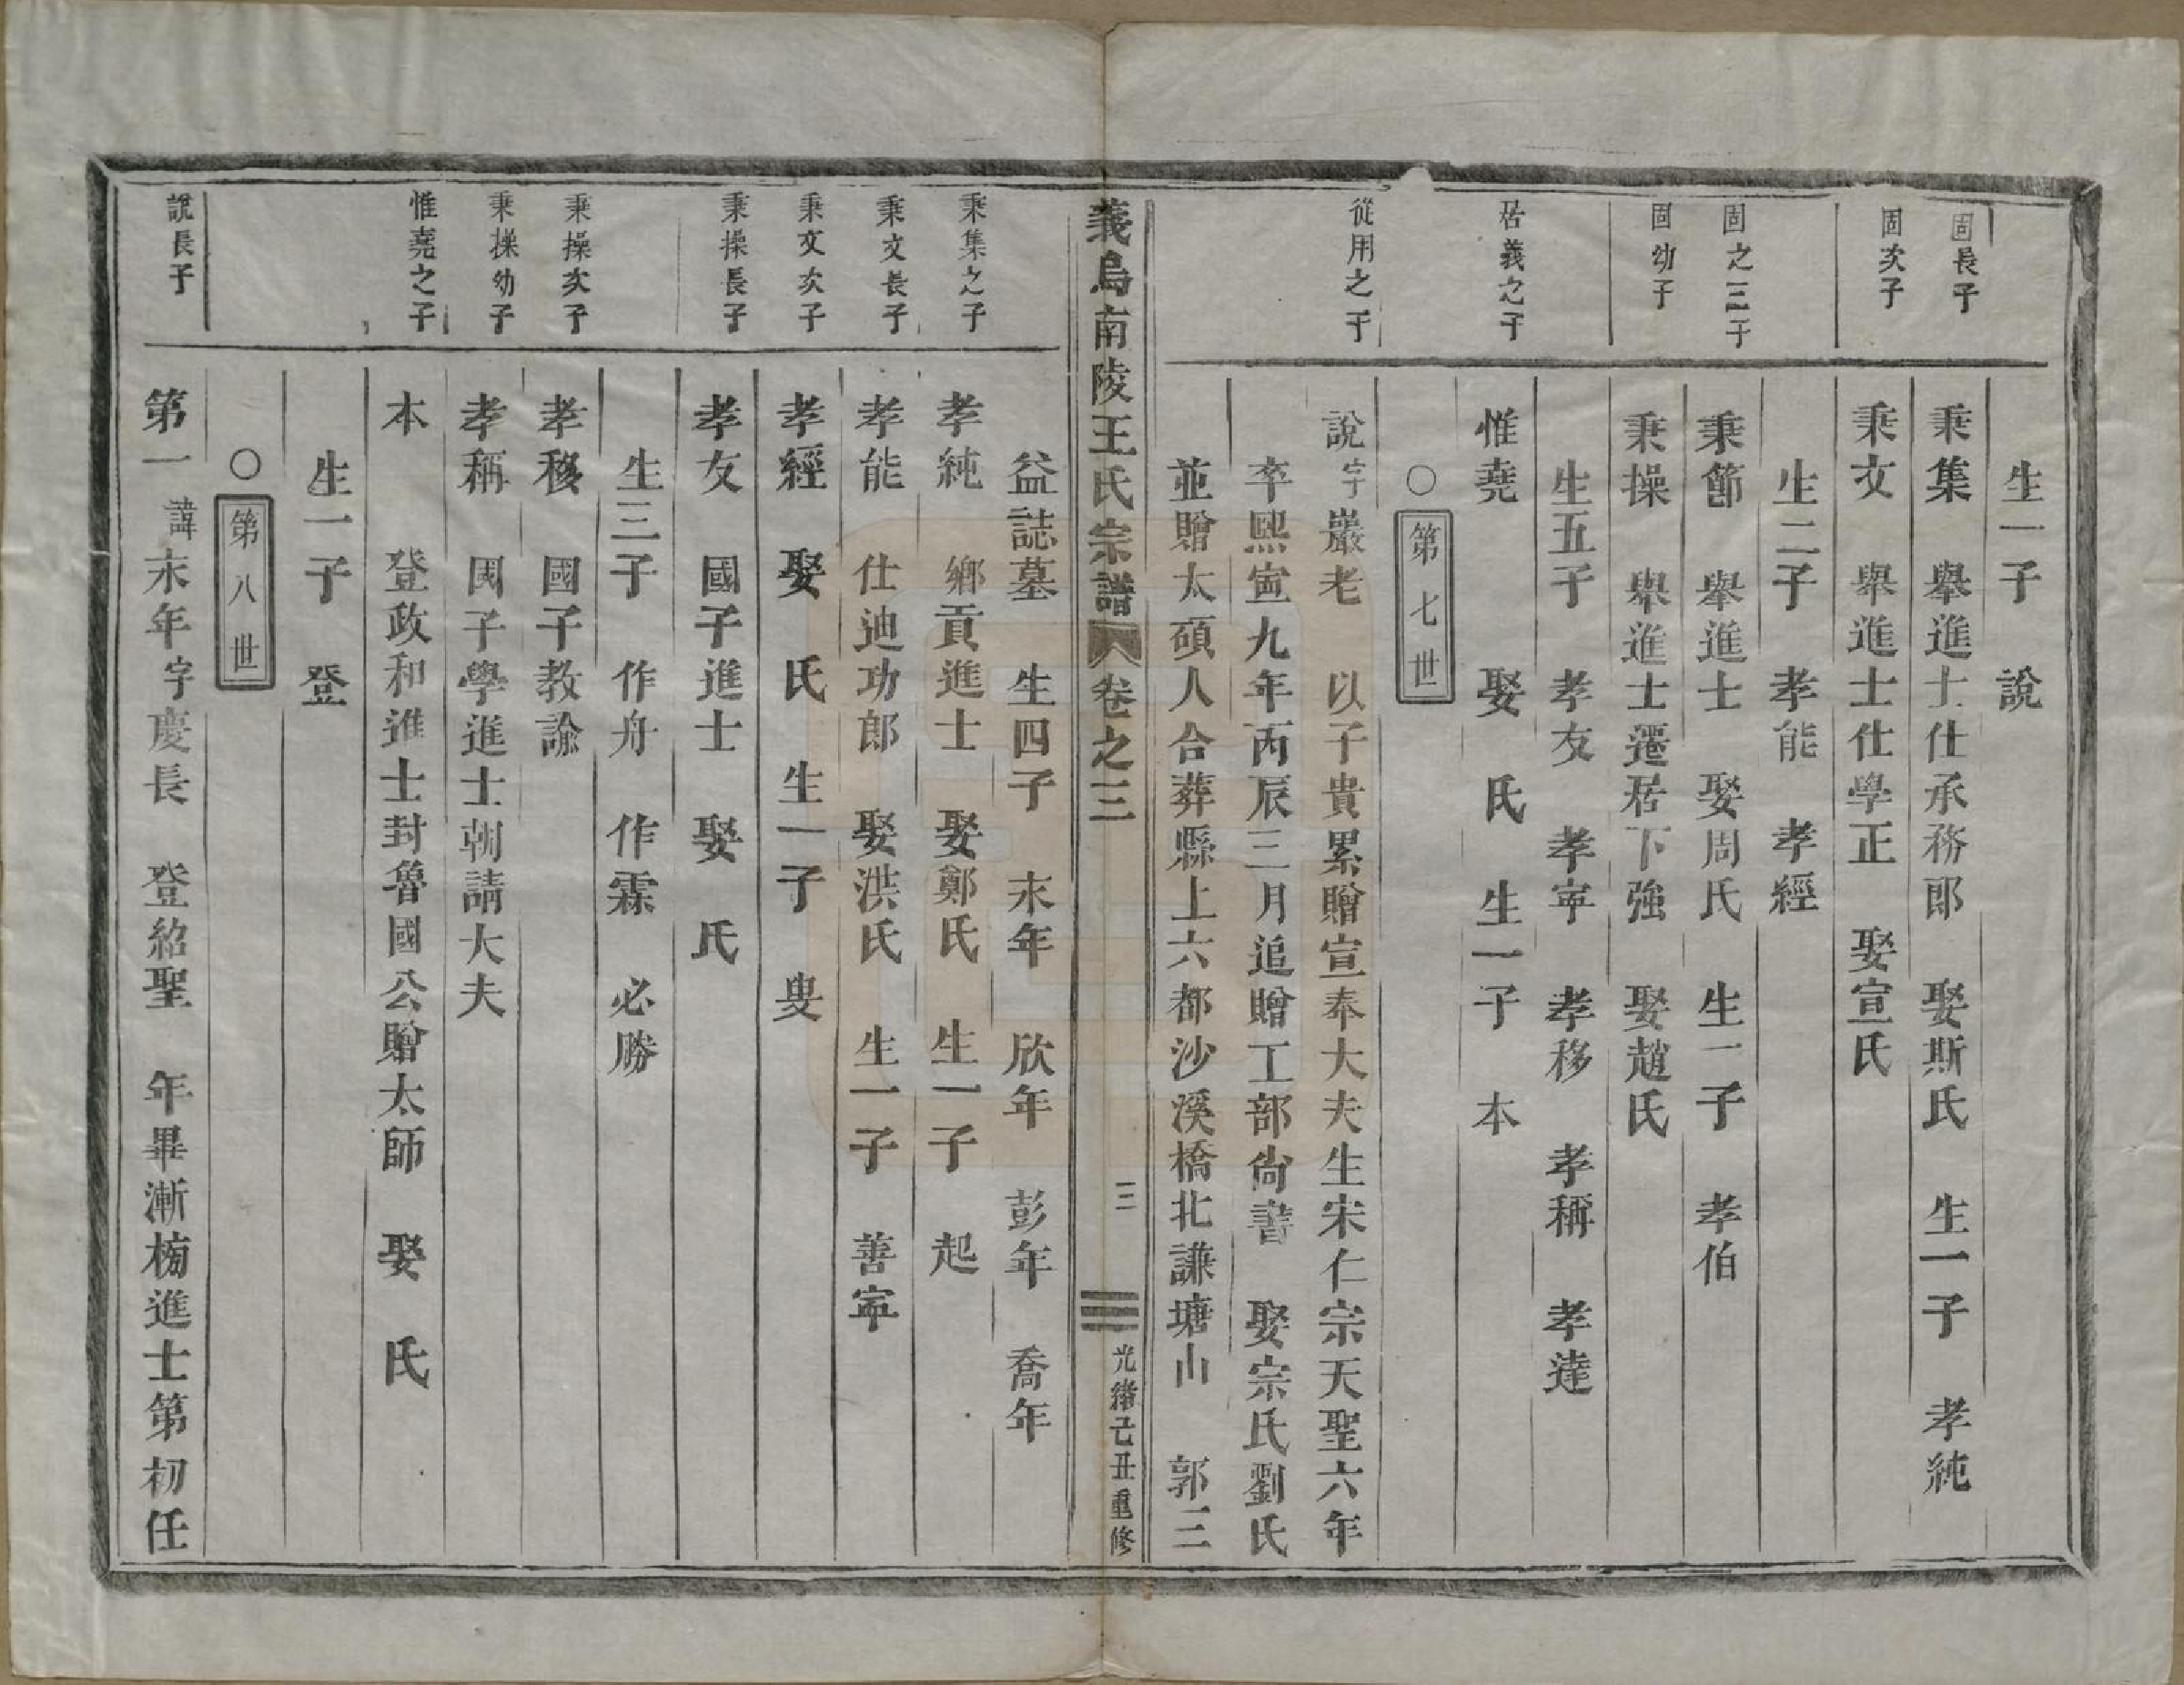 生一子　說
固長子
秉集　舉進士仕承務郎　娶斯氏　生一子　孝純
固次子
秉文　舉進士仕學正　娶宣氏
生二子　孝能　孝經
固之三子
秉節　舉進士　娶周氏　生一子　孝伯
固幼子
秉操　舉進士遷居下強　娶趙氏
生五子　孝友　孝寧　孝移　孝稱　孝達
居義之子
惟堯　娶　氏　生一子　本
○第七世
從用之子
說字巖老　以子貴累贈宣奉大夫生宋仁宗天聖六年
卒熙寧九年丙辰三月追贈工部尚書　娶宗氏劉氏
並贈太碩人合葬縣上六都沙溪橋北謙塘山　郭三
義烏南陵王氏宗譜　卷之三　三　光緒己丑重修
益誌墓　生四子　末年　欣年　彭年　喬年
秉集之子
孝純　鄉貢進士　娶鄭氏　生一子　起
秉文長子
孝能　仕迪功郎　娶洪氏　生一子　善寧
秉文次子
孝經　娶　氏　生一子　叟
秉操長子
孝友　國子進士　娶　氏
生三子　作舟　作霖　必勝
秉操次子
孝移　國子教諭
秉操幼子
孝稱　國子學進士朝請大夫
惟堯之子
本　登政和進士封魯國公贈太師　娶　氏
生一子　登
○第八世
說長子
第一諱末年字慶長　登紹聖　年畢漸榜進士第初任